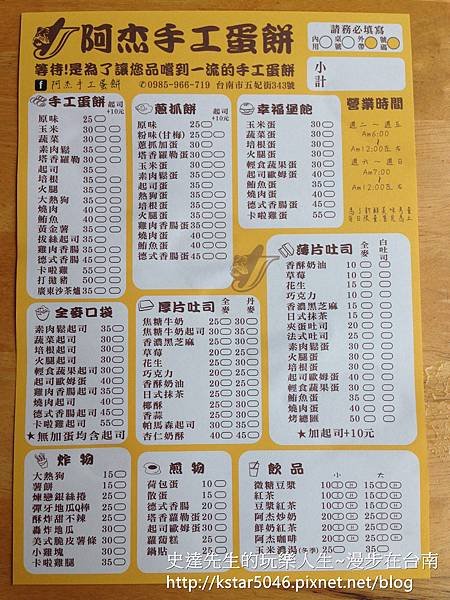 阿杰手工蛋餅
等待!是為了讓您品嚐到一流的手工蛋餅
阿杰手工蛋餅 ✆0985-966-719 台南市五妃街343號
請務必填寫
內用 桌號 外帶 號碼
小計
手工蛋餅 起司+10元
原味 25
玉米 30
蔬菜 30
素肉鬆 35
塔香羅勒 30
起司 35
培根 35
火腿 35
大熱狗 35
燒肉 40
鮪魚 40
黃金薯 35
拔絲起司 35
雞肉香腸 35
德式香腸 35
卡啦雞 55
打拋豬 35
廣東沙茶爐 35
蔥抓餅 起司+10元
原味 25
粉味(甘梅) 25
蔥抓加蛋 30
塔香羅勒蛋 30
玉米蛋 30
蔬菜蛋 30
素肉鬆蛋 30
起司蛋 30
熱狗蛋 30
培根蛋 30
火腿蛋 30
雞肉香腸 35
燒肉蛋 35
鮪魚蛋 35
德式香腸 45
幸福堡飽
玉米蛋 30
蔬菜蛋 30
培根蛋 30
火腿蛋 30
輕食蔬果蛋 30
起司歐姆蛋 30
鮪魚蛋 35
燒肉蛋 35
卡啦雞蛋 55
營業時間
週二~週五
Am6:00
Am12:00左右
週六~週日
Am7:00
Am12:00左右
為了新鮮美味考量
每日限量售完為止
全麥口袋
素肉鬆起司 35
蔬菜起司 30
培根起司 30
火腿起司 30
輕食蔬果起司 30
起司歐姆蛋 30
雞肉香腸起司 35
燒肉起司 40
德式香腸起司 45
卡啦雞起司 55
★無加蛋均含起司
厚片吐司 全麥 丹麥
焦糖牛奶 25
焦糖牛奶起司 30
香濃黑芝麻 25
草莓 20
花生 20
巧克力 20
香酥奶油 20
日式抹茶 20
椰酥 20
香蒜 20
帕馬森起司 30
杏仁奶酥 30
薄片吐司 全麥 白吐司
香酥奶油 10
草莓 10
花生 10
巧克力 10
香濃黑芝麻 15
日式抹茶 10
夾蛋吐司 20
法式吐司 25
素肉鬆蛋 30
火腿蛋 30
培根蛋 30
起司歐姆蛋 30
輕食蔬菜蛋 30
鮪魚蛋 35
燒肉蛋 40
烤總匯 50
★加起司+10元
炸物
大熱狗 15
薯餅 15
煉戀銀絲捲 20
彈牙地瓜Q棒 20
酥炸甜不辣 25
轟炸地瓜 25
美式脆皮薯條 30
小雞塊 30
卡啦雞腿 35
煎物
荷包蛋 10
散蛋 15
德式香腸 20
塔香羅勒蛋 25
起司歐姆蛋 30
蘿蔔糕 25
鍋貼 25
飲品 小 大
微糖豆漿
紅茶
豆漿紅茶
阿杰炒奶
鮮奶紅茶
阿杰咖啡
玉米濃湯(冬季)
史達先生的玩樂人生~漫步在台南
http://kstar5046.pixnet.net/blog